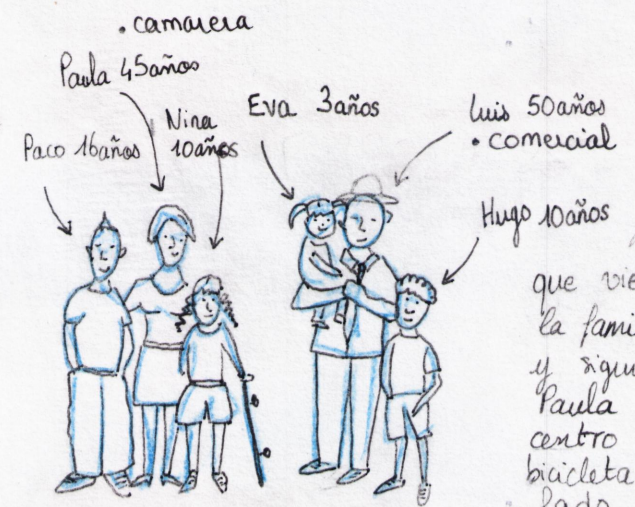 • camarera
Paula 45años
Nina
10años
Paco 16años
Eva 3años
Luis 50años
• comercial
Hugo 10años
que vie
la fami
y sigu
Paula
centro
bicicleta
lado